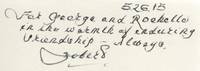 5.26.15
For George and Rochelle
in the warmth of enduring
friendship Always.
Robert